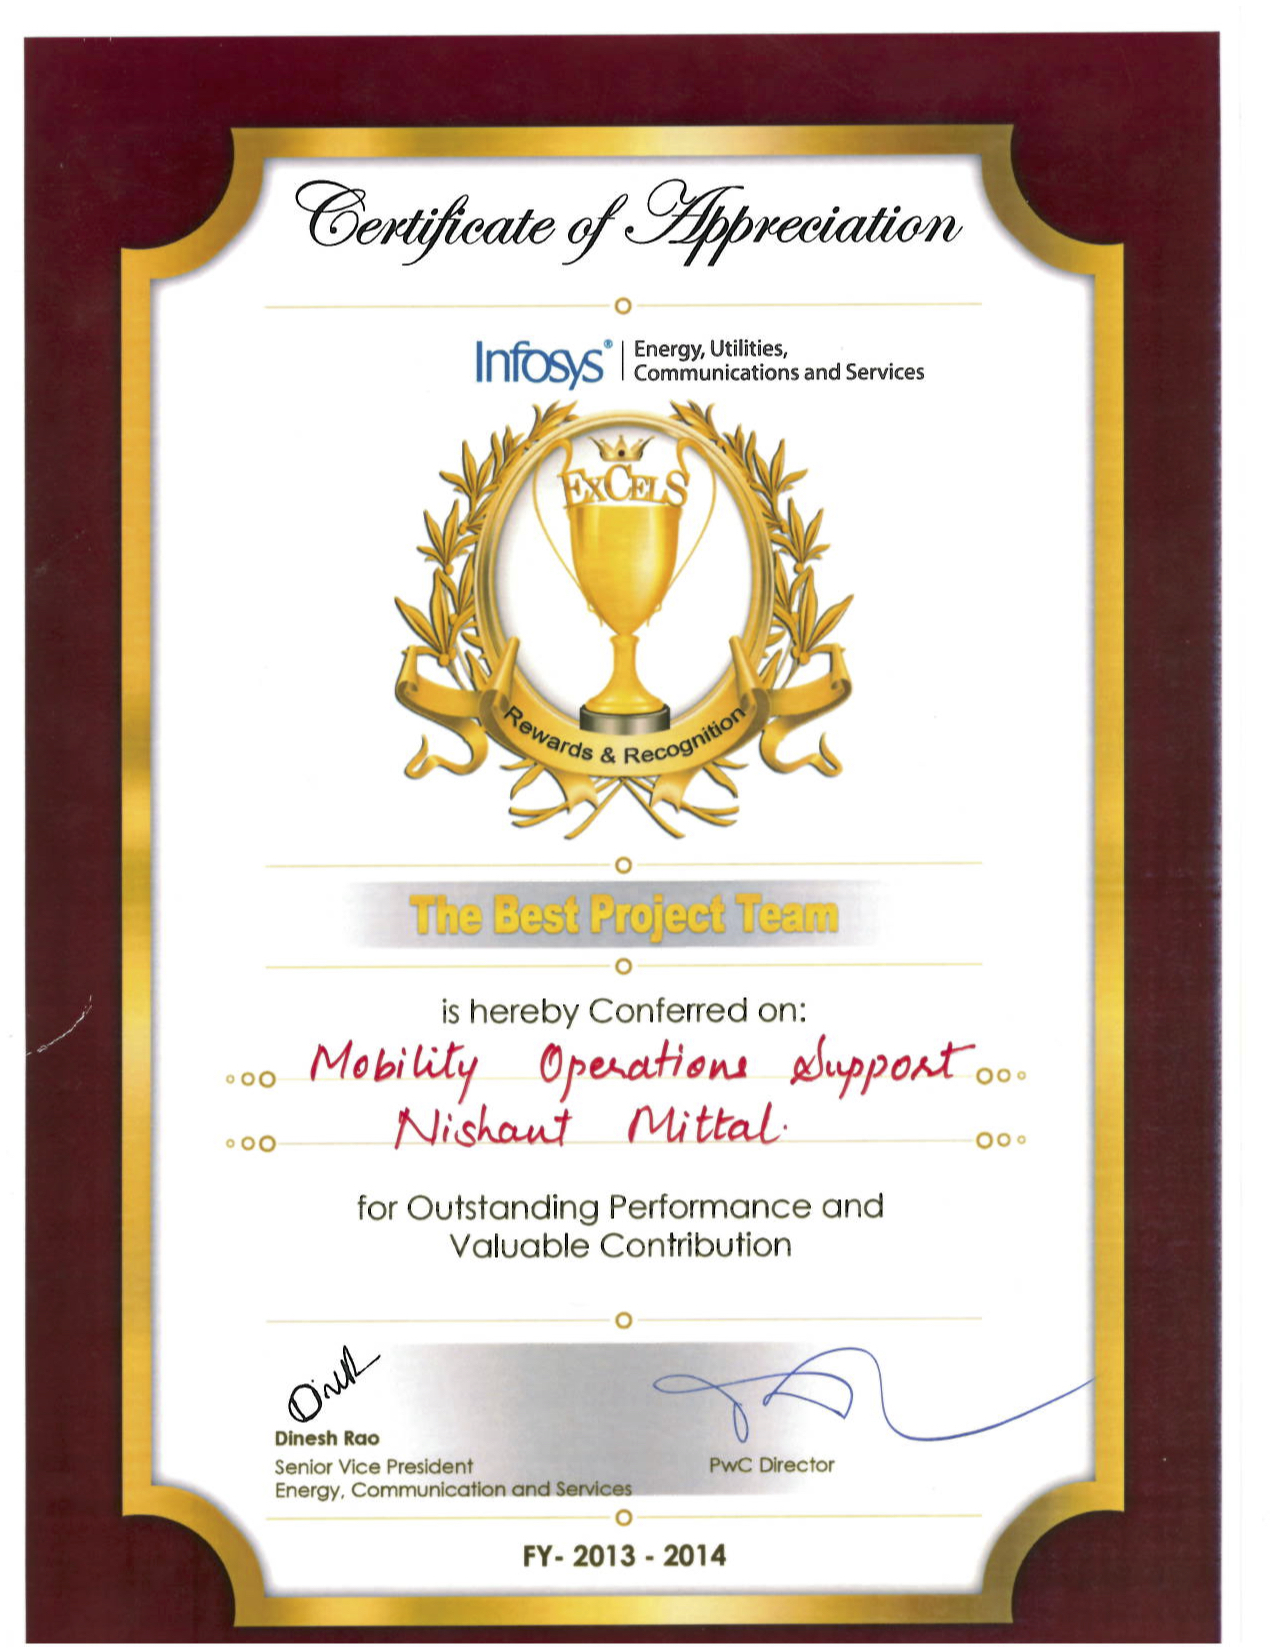 Certificate of Appreciation
Infosys® | Energy, Utilities,
Communications and Services
ExCELS
Rewards & Recognition
The Best Project Team
is hereby Conferred on:
Mobility Operations Support
Nishant Mittal.
for Outstanding Performance and
Valuable Contribution
Dinesh Rao
Senior Vice President
Energy, Communication and Services
PwC Director
FY- 2013 - 2014